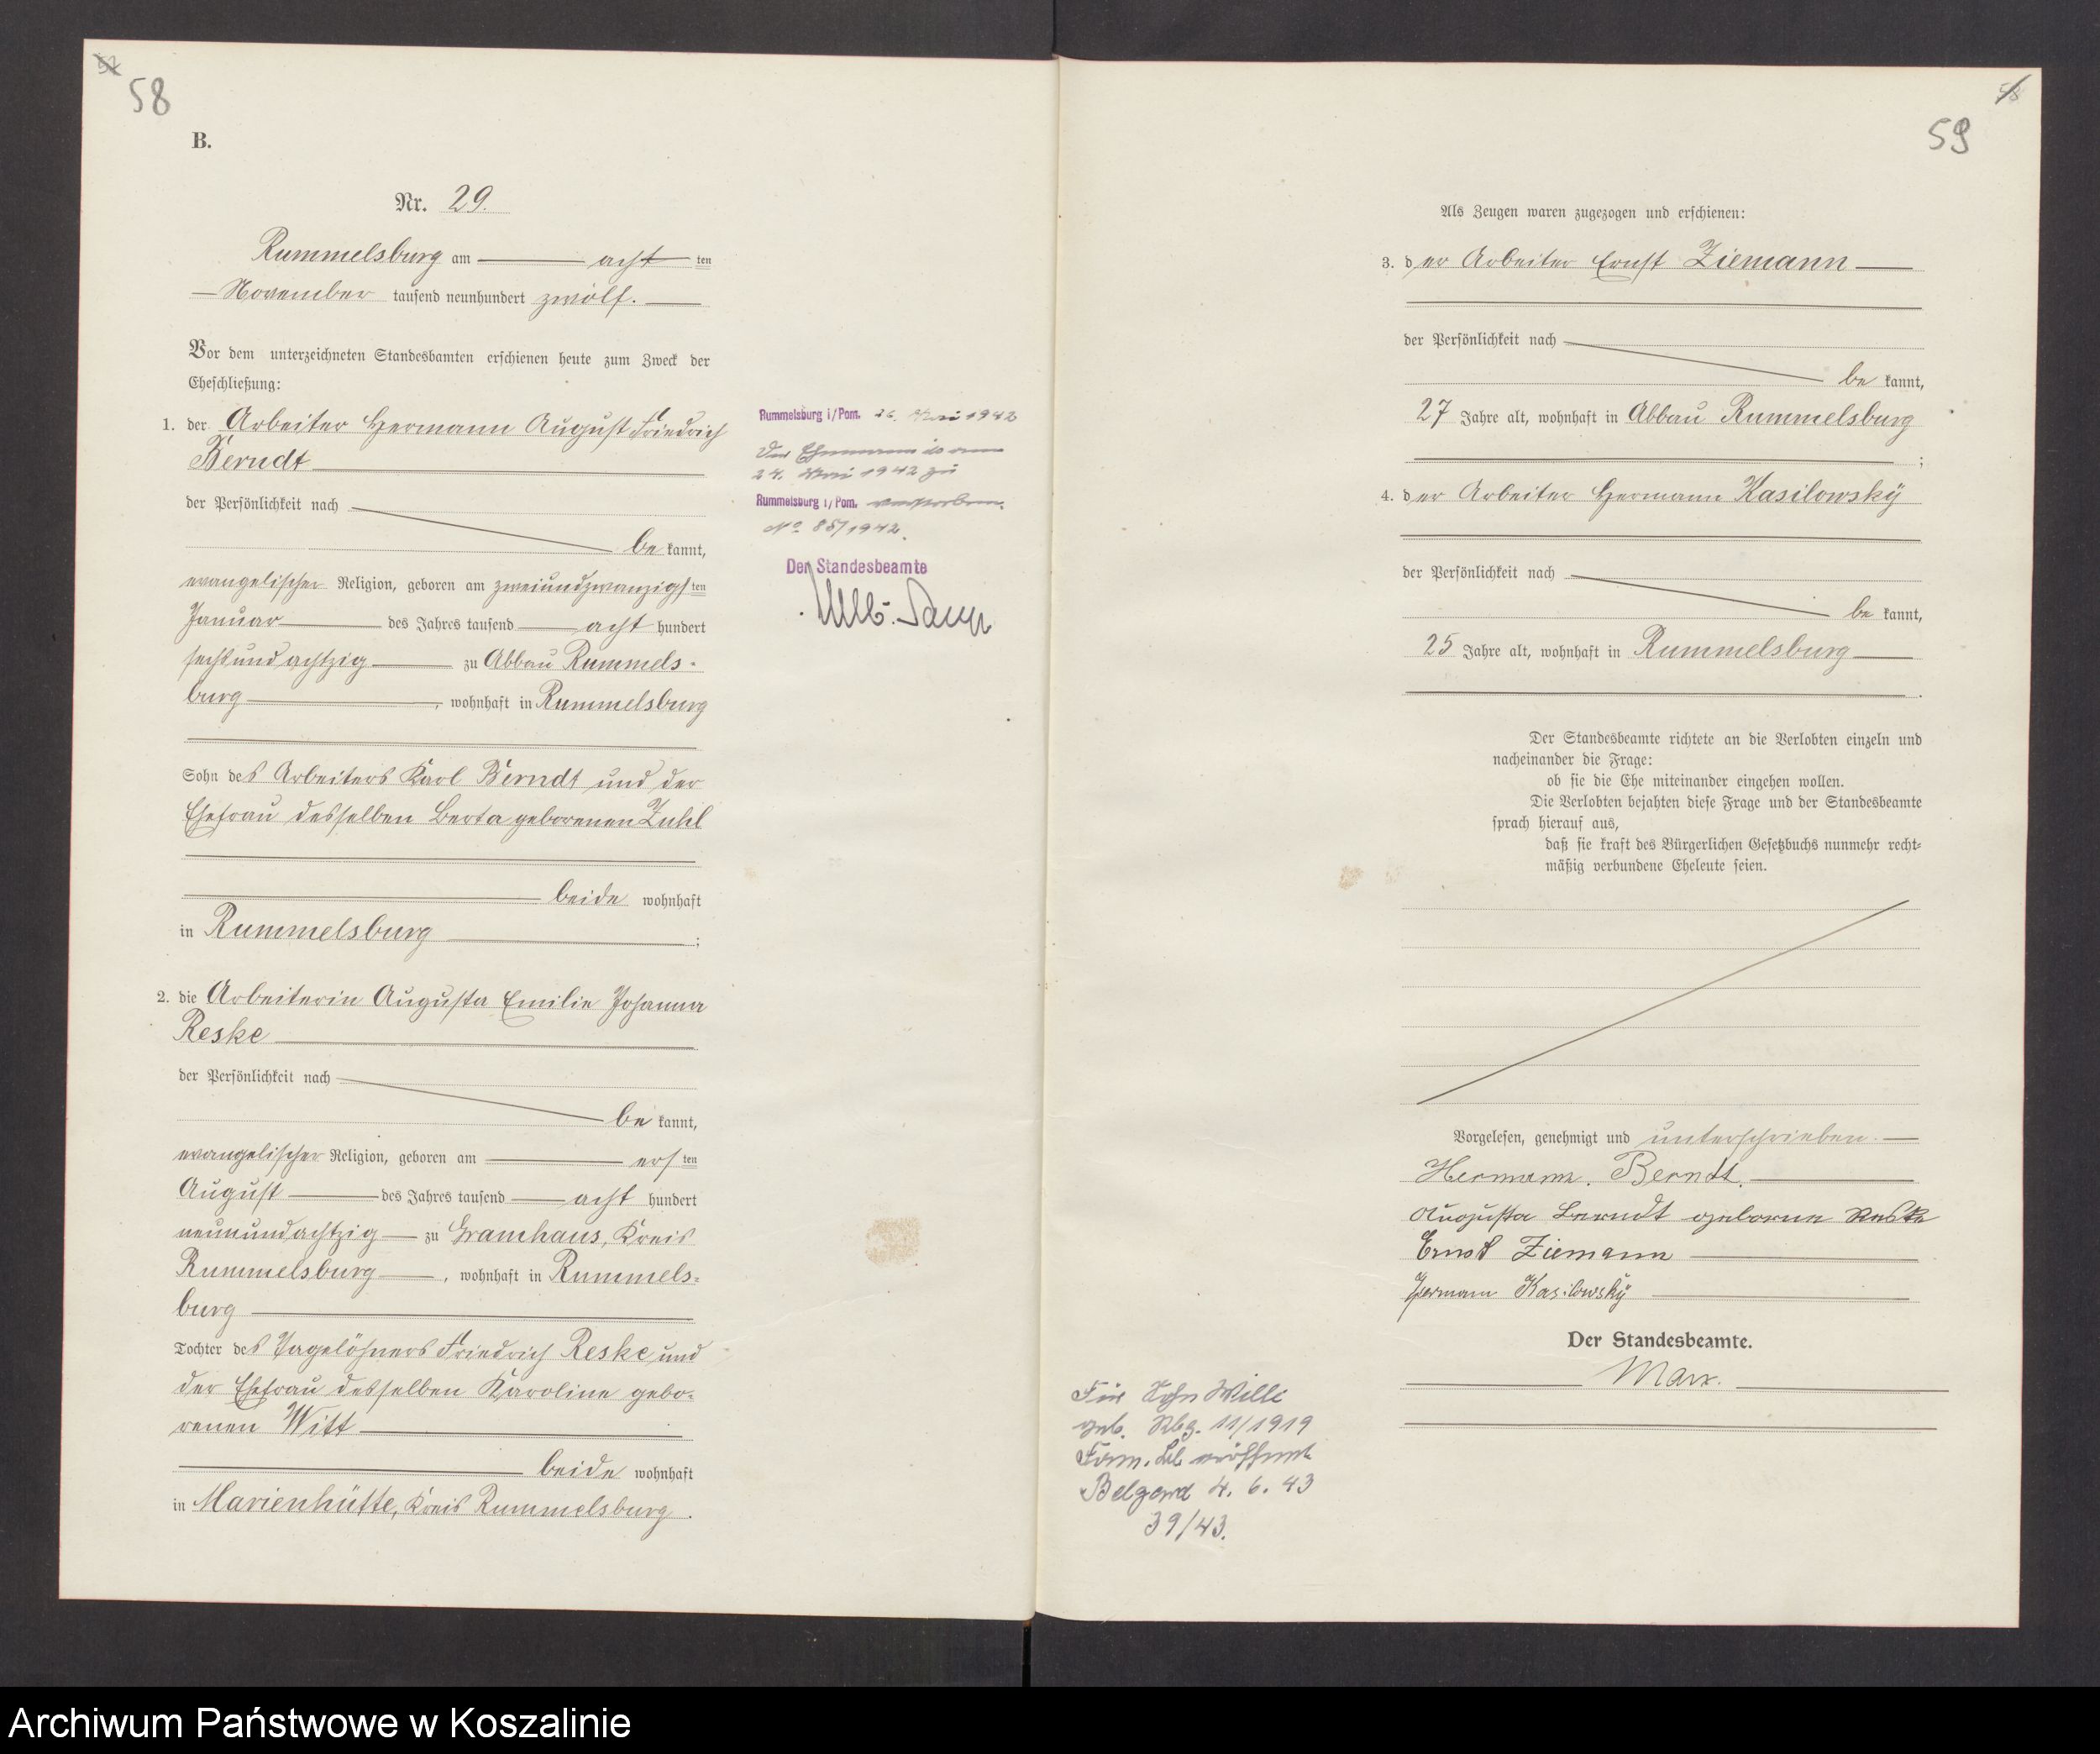 58
B.
Nr. 29.
Rummelsburg am acht ten
November tausend neunhundert zwölf.
Vor dem unterzeichneten Standesbamten erschienen heute zum Zweck der
Eheschließung:
1. der Arbeiter Hermann August Friedrich
Berndt
der Persönlichkeit nach
be kannt,
evangelischer Religion, geboren am zweiundzwanzigsten
Januar des Jahres tausend acht hundert
sechsundachtzig zu Abbau Rummels-
burg, wohnhaft in Rummelsburg
Sohn des Arbeiters Karl Berndt und der
Ehefrau desselben Berta geborenen Zuhl
beide wohnhaft
in Rummelsburg;
2. die Arbeiterin Augusta Emilie Johanna
Reske
der Persönlichkeit nach
be kannt,
evangelischer Religion, geboren am ersten
August des Jahres tausend acht hundert
neunundachtzig zu Gramhaus, Kreis
Rummelsburg, wohnhaft in Rummels-
burg
Tochter des Tagelöhners Friedrich Reske und
der Ehefrau desselben Karoline gebo-
renen Witt
beide wohnhaft
in Marienhütte, Kreis Rummelsburg.
Rummelsburg i/Pom. 26. Mai 1942
Der Ehemann is am
24. Mai 1942 zu
Rummelsburg i/Pom. verstorben.
No 85/1942.
Der Standesbeamte
58
59
Als Zeugen waren zugezogen und erschienen:
3. der Arbeiter Ernst Ziemann
der Persönlichkeit nach
be kannt,
27 Jahre alt, wohnhaft in Abbau Rummelsburg
;
4. der Arbeiter Hermann Kasilowsky
der Persönlichkeit nach
be kannt,
25 Jahre alt, wohnhaft in Rummelsburg
.
Der Standesbeamte richtete an die Verlobten einzeln und
nacheinander die Frage:
ob sie die Ehe miteinander eingehen wollen.
Die Verlobten bejahten diese Frage und der Standesbeamte
sprach hierauf aus,
daß sie kraft des Bürgerlichen Gesetzbuchs nunmehr recht-
mäßig verbundene Eheleute seien.
Vorgelesen, genehmigt und unterschrieben.
Hermann. Berndt.
Augusta Berndt geborne Reske
Ernst Ziemann
Hermann Kasilowsky
Der Standesbeamte.
Marx.
Für Sohn Willi
geb. Rbg. 11/1919
Fam. Bl. eröffnet
Belgard 4. 6. 43
39/43.
Archiwum Państwowe w Koszalinie